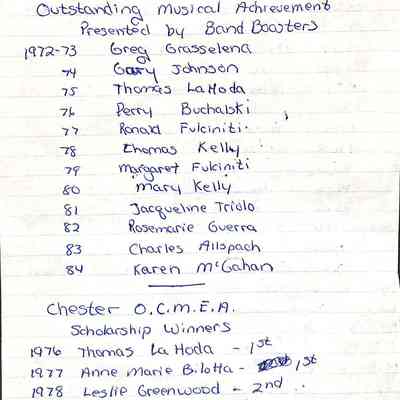 Outstanding Musical Achievement
Presented by Band Boosters
1972-73 Greg Grasselena
74 Gary Johnson
75 Thomas LaHoda
76 Perry Buchalski
77 Ronald Fulciniti
78 Thomas Kelly
79 Margaret Fulciniti
80 Mary Kelly
81 Jacqueline Triolo
82 Rosemarie Guerra
83 Charles Allspach
84 Karen McGahan
Chester O.C.M.E.A.
Scholarship Winners
1976 Thomas La Hoda - 1st
1977 Anne Marie Bilotta - 1st
1978 Leslie Greenwood - 2nd